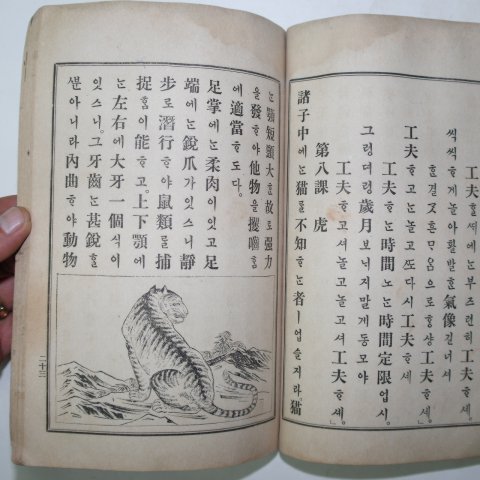 工夫ᄒᆞᆯᄯᅢ에ᄂᆞᆫ부즈런히工夫ᄒᆞ세
씩씩ᄒᆞ게놀아활발ᄒᆞᆫ氣像길너셔
ᄒᆞᆫ결又흔ᄆᆞᄋᆞᆷ으로ᄒᆞᆼ샹工夫ᄒᆞ세。」
工夫ᄒᆞ고ᄂᆞᆫ놀고ᄯᅩ다시工夫ᄒᆞ세
工夫ᄒᆞᄂᆞᆫ時間노ᄂᆞᆫ時間定限업시。
그렁더렁歲月보ᄂᆡ지말게동모야
工夫ᄒᆞ고셔놀고놀고셔工夫ᄒᆞ세。」
第八課 虎
諸子中에ᄂᆞᆫ猫ᄅᆞᆯ不知ᄒᆞᄂᆞᆫ者ㅣ업슬지라猫
ᄂᆞᆫ顎短頭大ᄒᆞᆫ故로强力
을發ᄒᆞ야他物을攫噛홈
에適當ᄒᆞ도다。
足掌에ᄂᆞᆫ柔肉이잇고足
端에ᄂᆞᆫ銳爪가잇스니靜
步로潛行ᄒᆞ야鼠類를捕
捉홈이能ᄒᆞ고。上下顎에
ᄂᆞᆫ左右에大牙一個식이
잇스니。그牙齒ᄂᆞᆫ甚銳ᄒᆞᆯ
ᄲᅮᆫ아니라內曲ᄒᆞ야動物
二十三